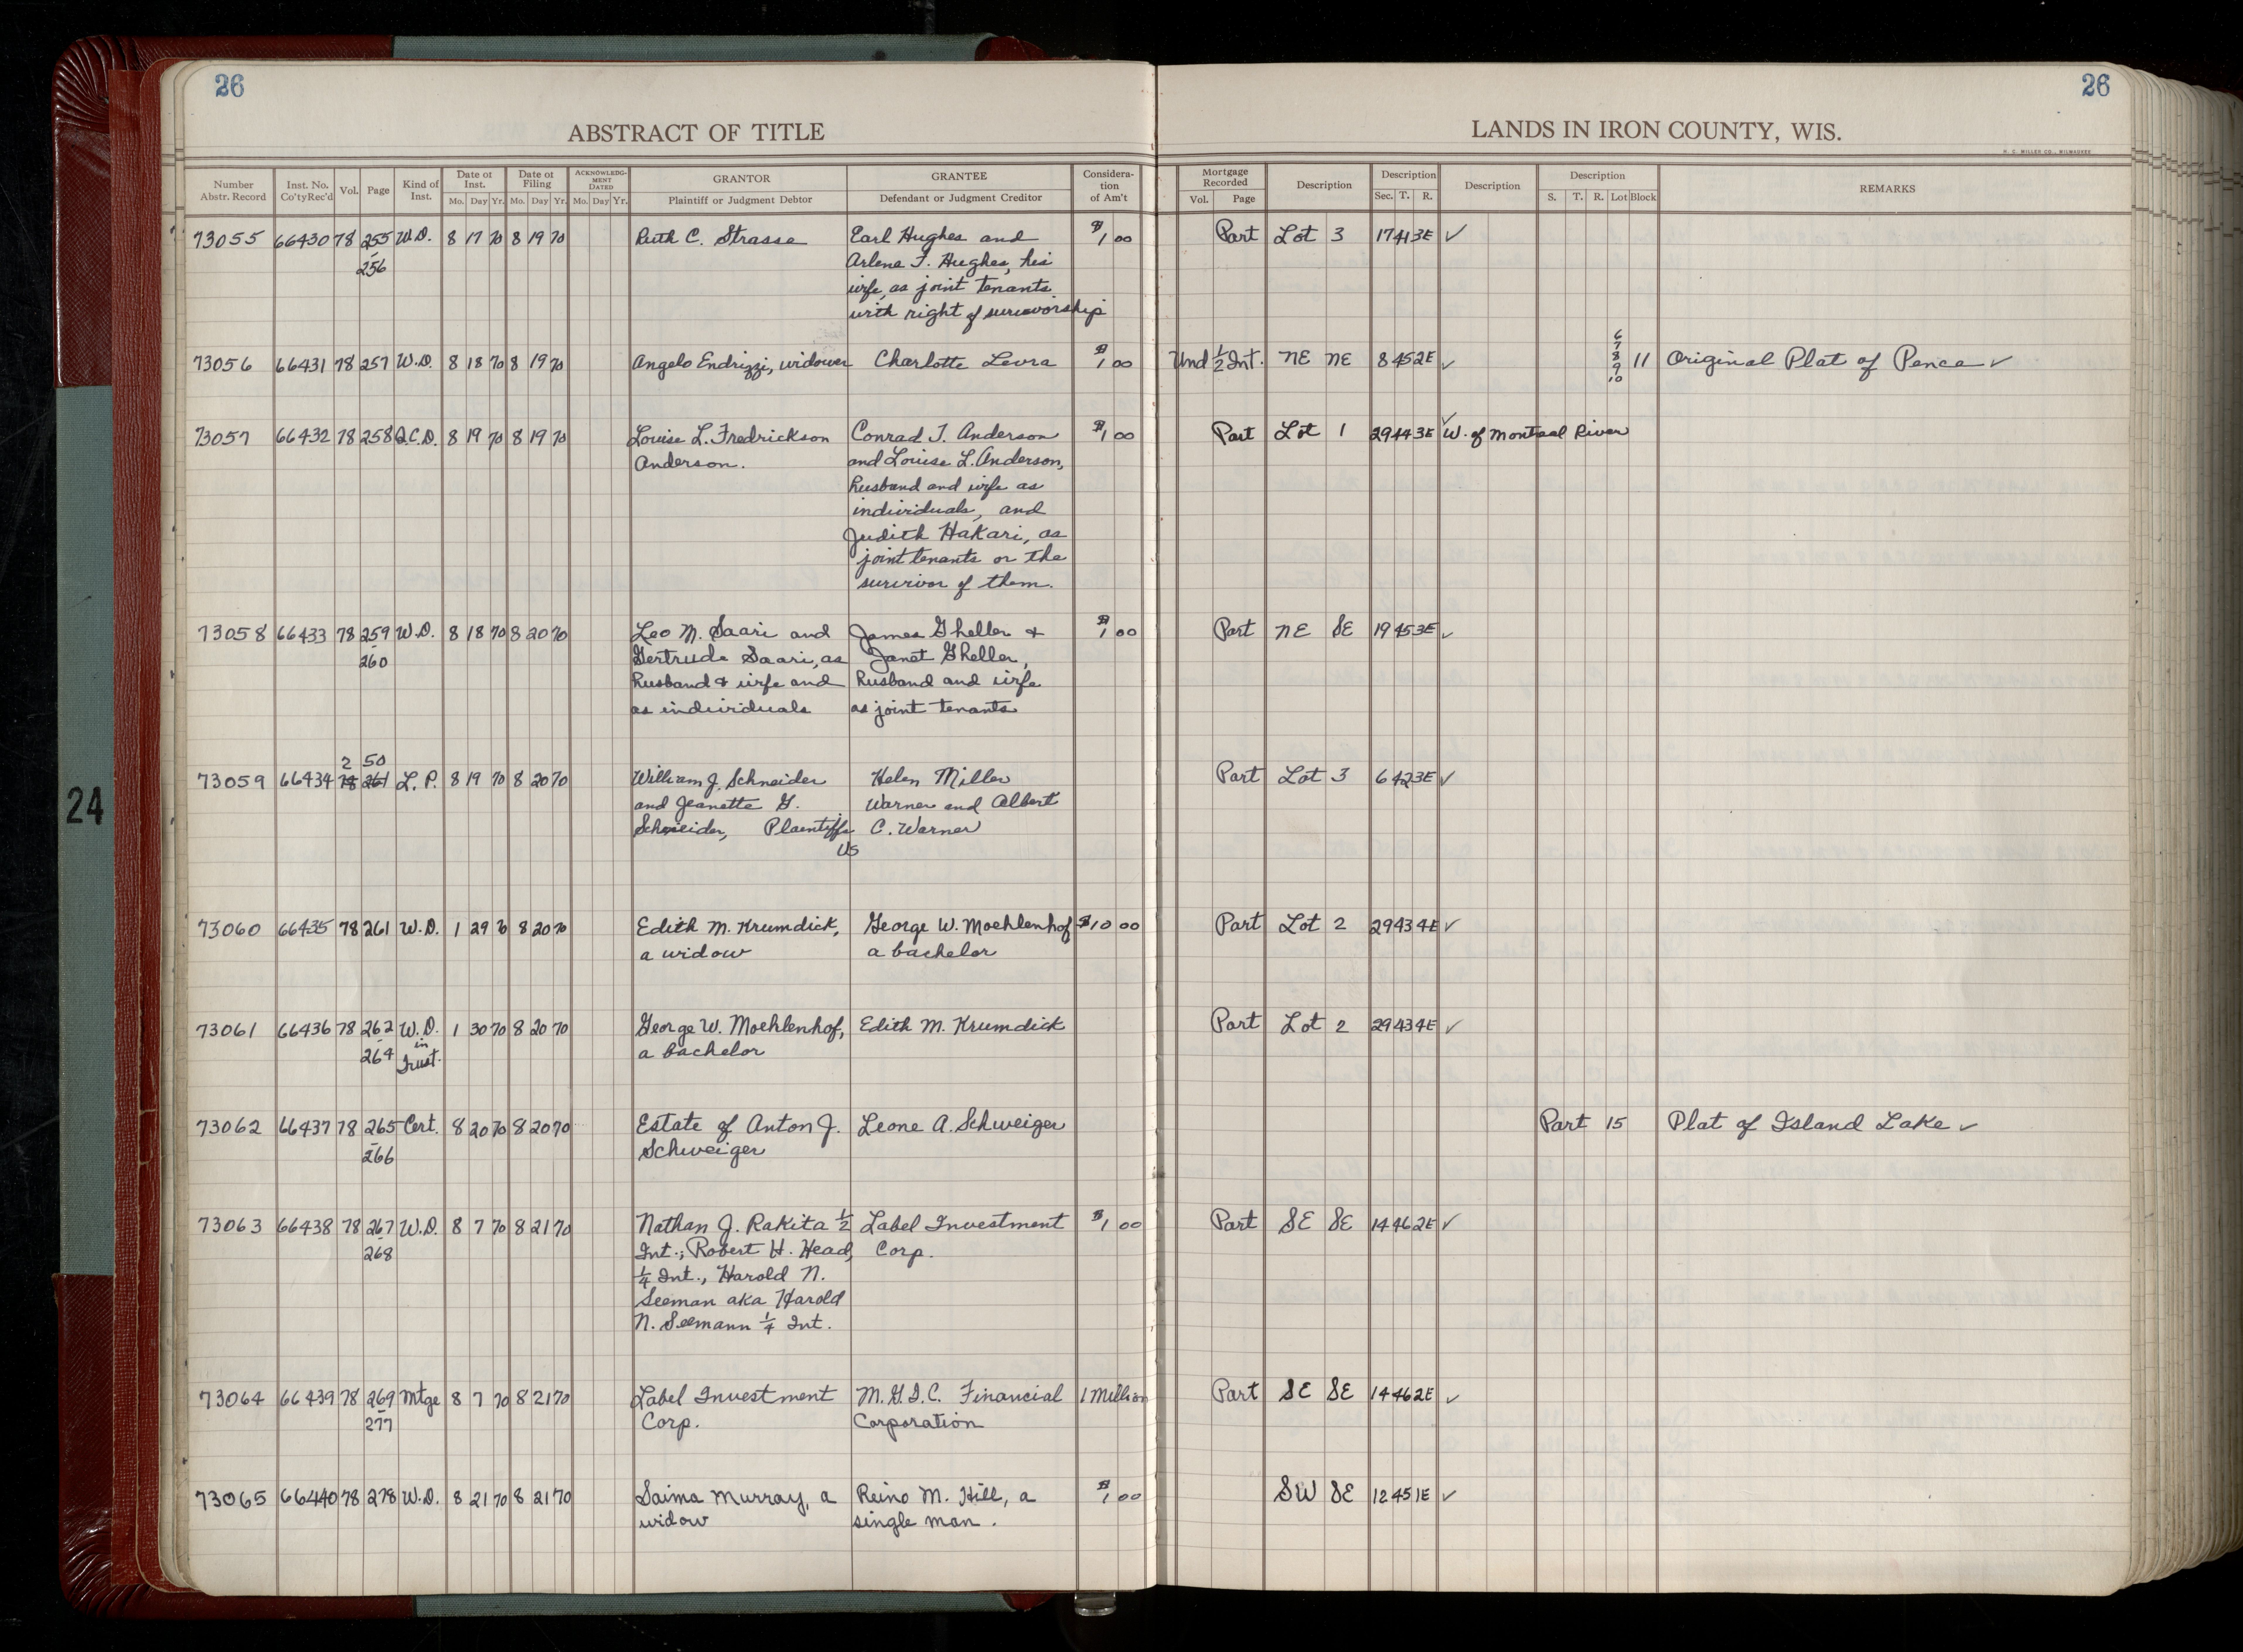 26
26
ABSTRACT OF TITLE
LANDS IN IRON COUNTY, WIS.
H. C. MILLER CO., MILWAUKEE
Number Abstr. Record Inst. No. Co'ty Rec'd Vol. Page Kind of Inst. Date of Inst. Mo. Day Yr. Date of Filing Mo. Day Yr. ACKNOWLEDG-MENT DATED Mo. Day Yr. GRANTOR Plaintiff or Judgment Debtor GRANTEE Defendant or Judgment Creditor Considera-tion of Am't Mortgage Recorded Vol. Page Description Description Sec. T. R. Description Description S. T. R. Lot Block REMARKS
73055 66430 78 255 W.D. 8 17 70 8 19 70 Ruth C. Strasse Earl Hughes and $1 00 Part Lot 3 17 41 3E ✓
256 Arlene F. Hughes, his
wife, as joint tenants
with right of survivorship
6
7
73056 66431 78 257 W.D. 8 18 70 8 19 70 Angelo Endrizzi, widower Charlotte Levra $1 00 Und ½ Int. NE NE 8 45 2E ✓ 8 11 Original Plat of Pence ✓
9
10
73057 66432 78 258 Q.C.D. 8 19 70 8 19 70 Louise L. Fredrickson Conrad J. Anderson $1 00 Part Lot 1 29 44 3E ✓ W. of Montreal River
Anderson. and Louise L. Anderson,
husband and wife as
individuals, and
Judith Hakari, as
joint tenants or the
survivor of them.
73058 66433 78 259 W.D. 8 18 70 8 20 70 Leo M. Saari and James Gheller & $1 00 Part NE SE 19 45 3E ✓
260 Gertrude Saari, as Janet Gheller,
husband & wife and husband and wife
as individuals as joint tenants
2 50
73059 66434 78 261 L. P. 8 19 70 8 20 70 William J. Schneider Helen Miller Part Lot 3 6 42 3E ✓
and Jeanette G. Warner and Albert
Schneider, Plaintiffs C. Warner
vs
73060 66435 78 261 W.D. 1 29 70 8 20 70 Edith M. Krumdick, George W. Moehlenhof $10 00 Part Lot 2 29 43 4E ✓
a widow a bachelor
73061 66436 78 262 W.D. 1 30 70 8 20 70 George W. Moehlenhof, Edith M. Krumdick Part Lot 2 29 43 4E ✓
264 in Trust. a bachelor
73062 66437 78 265 Cert. 8 20 70 8 20 70 Estate of Anton J. Leone A. Schweiger Part 15 Plat of Island Lake ✓
266 Schweiger
73063 66438 78 267 W.D. 8 7 70 8 21 70 Nathan J. Rakita ½ Label Investment $1 00 Part SE SE 14 46 2E ✓
268 Int.; Robert H. Head, Corp.
¼ Int., Harold N.
Seeman aka Harold
N. Seemann ¼ Int.
73064 66439 78 269 Mtge 8 7 70 8 21 70 Label Investment M.G.I.C. Financial 1 Million Part SE SE 14 46 2E ✓
277 Corp. Corporation
73065 66440 78 278 W.D. 8 21 70 8 21 70 Saima Murray, a Reino M. Hill, a $1 00 SW SE 12 45 1E ✓
widow single man.
24